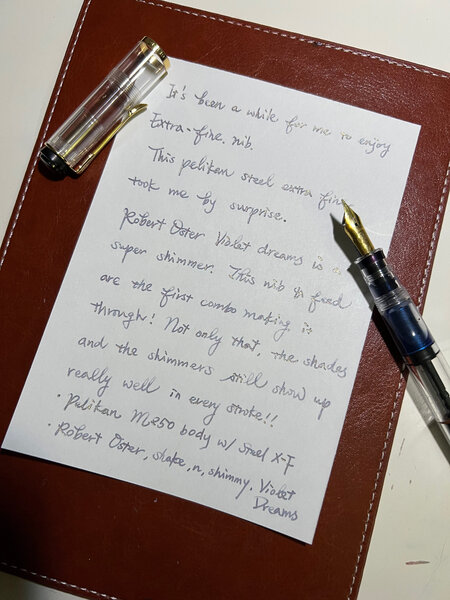 It's been a while for me to enjoy
Extra-fine nib.
This pelikan steel extra fine
took me by surprise.
Robert Oster Violet dreams is a
super shimmer. This nib & feed
are the first combo making it
through! Not only that, the shades
and the shimmers still show up
really well in every stroke!!
• Pelikan M250 body w/ Steel X-F
• Robert Oster, shake, n, shimmy, Violet
Dreams